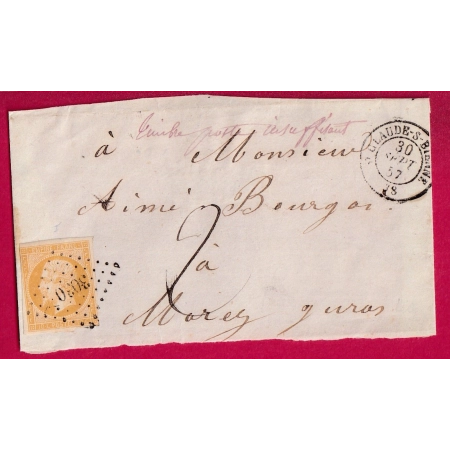 Timbre poste insuffisant
à Monsieur
Aimé Bourgoi
à
Morez Juras
2
ST CLAUDE-S-BIENNE
30
SEPT
57
(38)